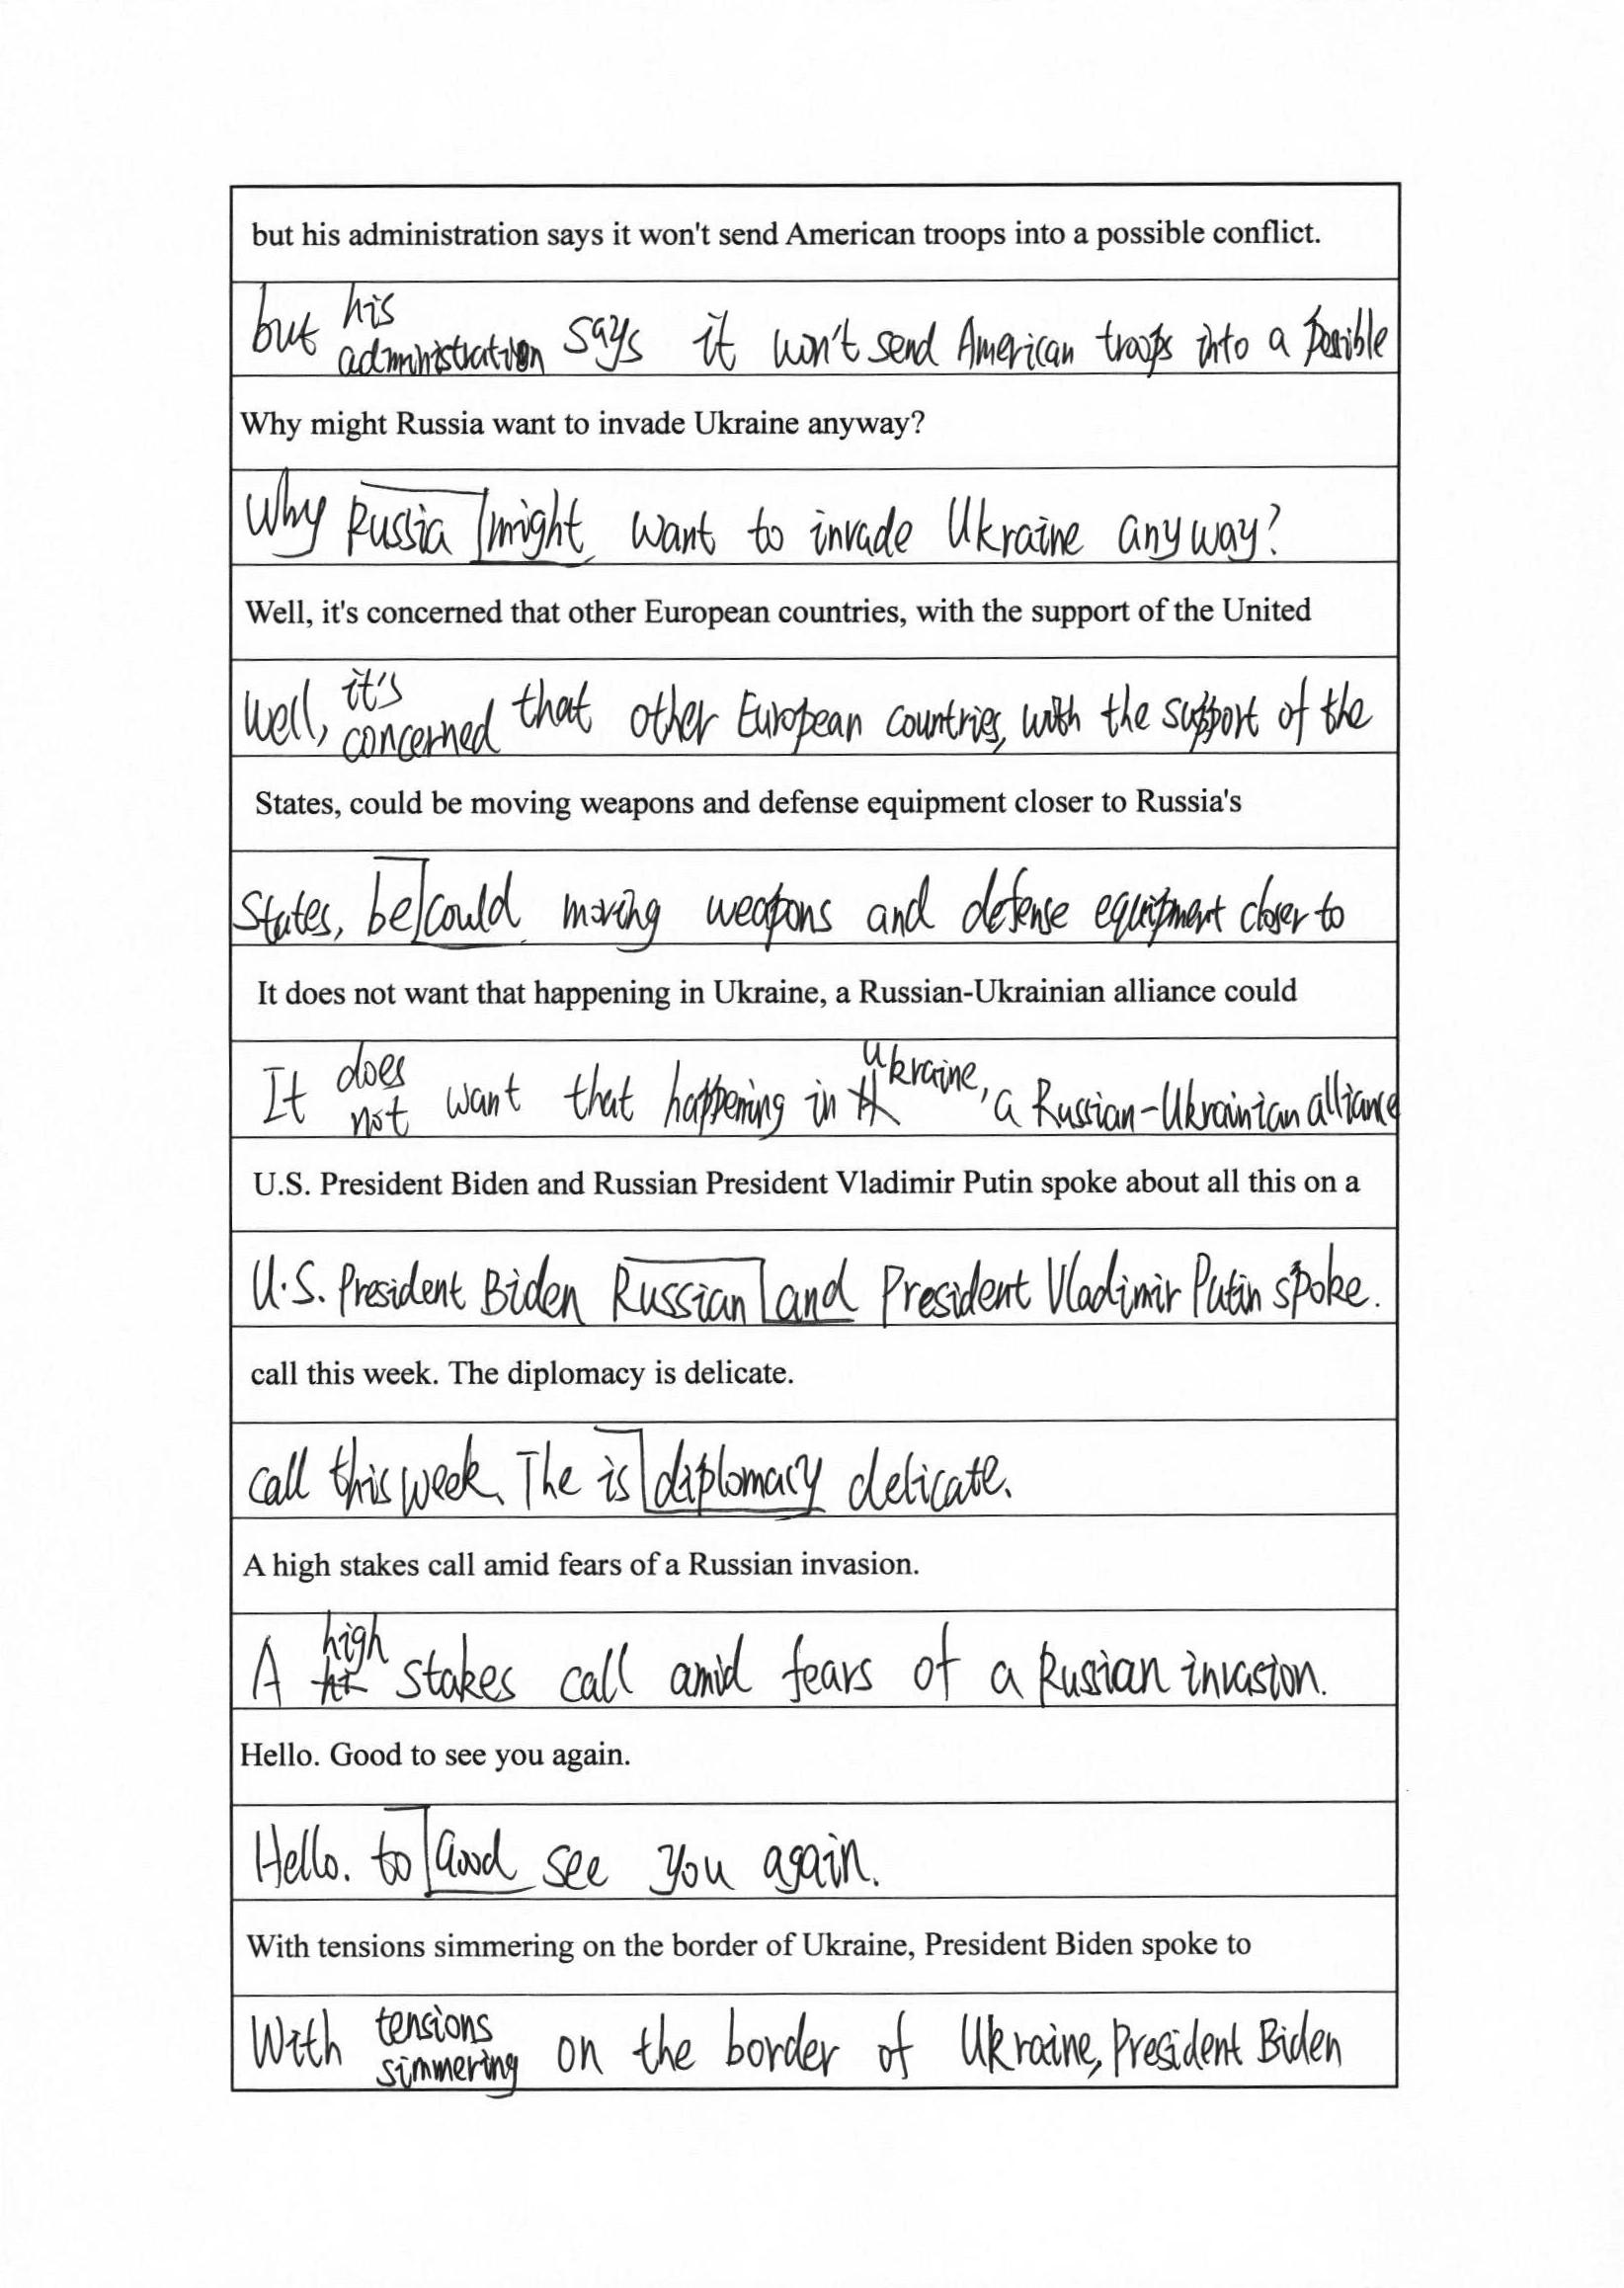 but his administration says it won't send American troops into a possible conflict.
but his administration says it won't send American troops into a possible
Why might Russia want to invade Ukraine anyway?
Why Russia might want to invade Ukraine anyway?
Well, it's concerned that other European countries, with the support of the United
Well, it's concerned that other European countries, with the support of the
States, could be moving weapons and defense equipment closer to Russia's
States, be could moving weapons and defense equipment closer to
It does not want that happening in Ukraine, a Russian-Ukrainian alliance could
It does not want that happening in Ukraine, a Russian-Ukrainian alliance
U.S. President Biden and Russian President Vladimir Putin spoke about all this on a
U.S. President Biden Russian and President Vladimir Putin spoke.
call this week. The diplomacy is delicate.
call this week. The is diplomacy delicate.
A high stakes call amid fears of a Russian invasion.
A high stakes call amid fears of a Russian invasion.
Hello. Good to see you again.
Hello. to Good see you again.
With tensions simmering on the border of Ukraine, President Biden spoke to
With tensions simmering on the border of Ukraine, President Biden